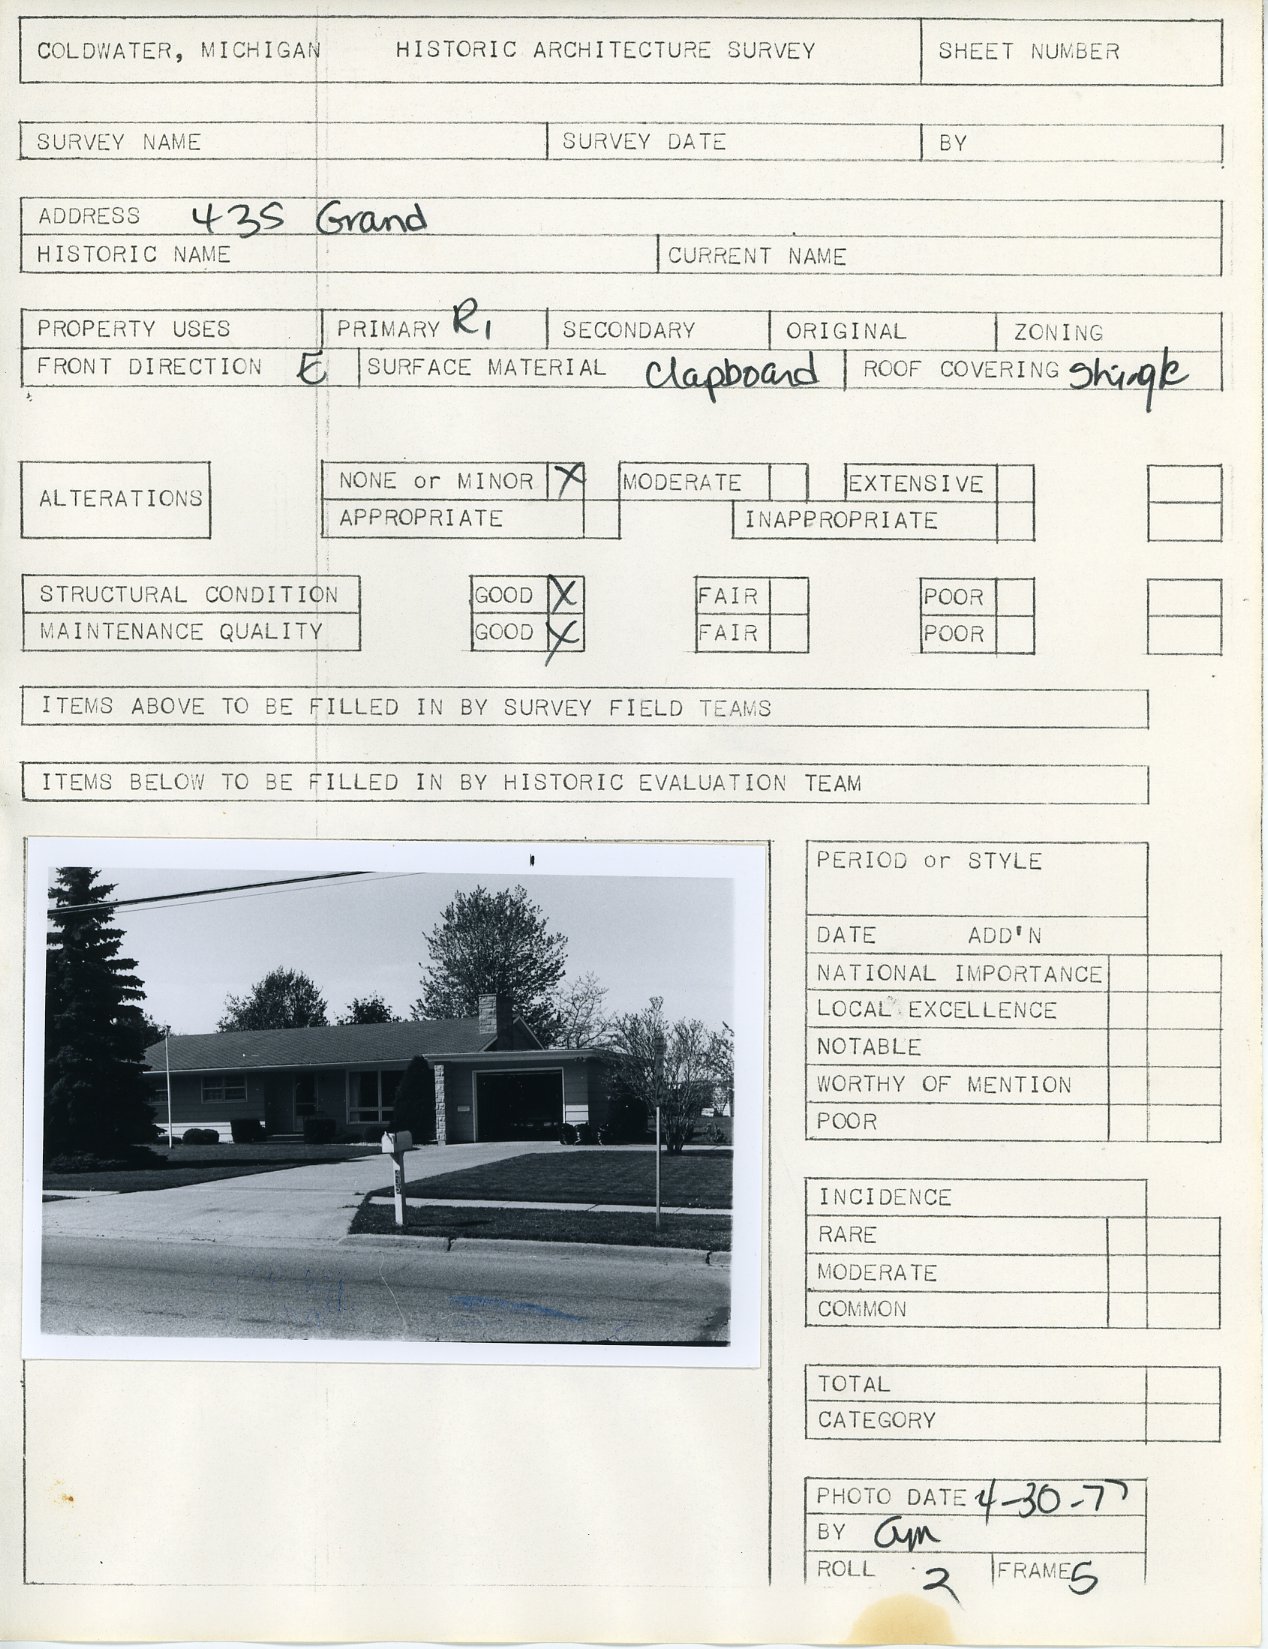 COLDWATER, MICHIGAN HISTORIC ARCHITECTURE SURVEY SHEET NUMBER
SURVEY NAME SURVEY DATE BY
ADDRESS 435 Grand
HISTORIC NAME CURRENT NAME
PROPERTY USES PRIMARY R1 SECONDARY ORIGINAL ZONING
FRONT DIRECTION E SURFACE MATERIAL Clapboard ROOF COVERING Shingle
ALTERATIONS NONE or MINOR X MODERATE EXTENSIVE
APPROPRIATE INAPPROPRIATE
STRUCTURAL CONDITION GOOD X FAIR POOR
MAINTENANCE QUALITY GOOD X FAIR POOR
ITEMS ABOVE TO BE FILLED IN BY SURVEY FIELD TEAMS
ITEMS BELOW TO BE FILLED IN BY HISTORIC EVALUATION TEAM
PERIOD or STYLE
DATE ADD'N
NATIONAL IMPORTANCE
LOCAL EXCELLENCE
NOTABLE
WORTHY OF MENTION
POOR
INCIDENCE
RARE
MODERATE
COMMON
TOTAL
CATEGORY
PHOTO DATE 4-30-77
BY
ROLL 2 FRAME 5